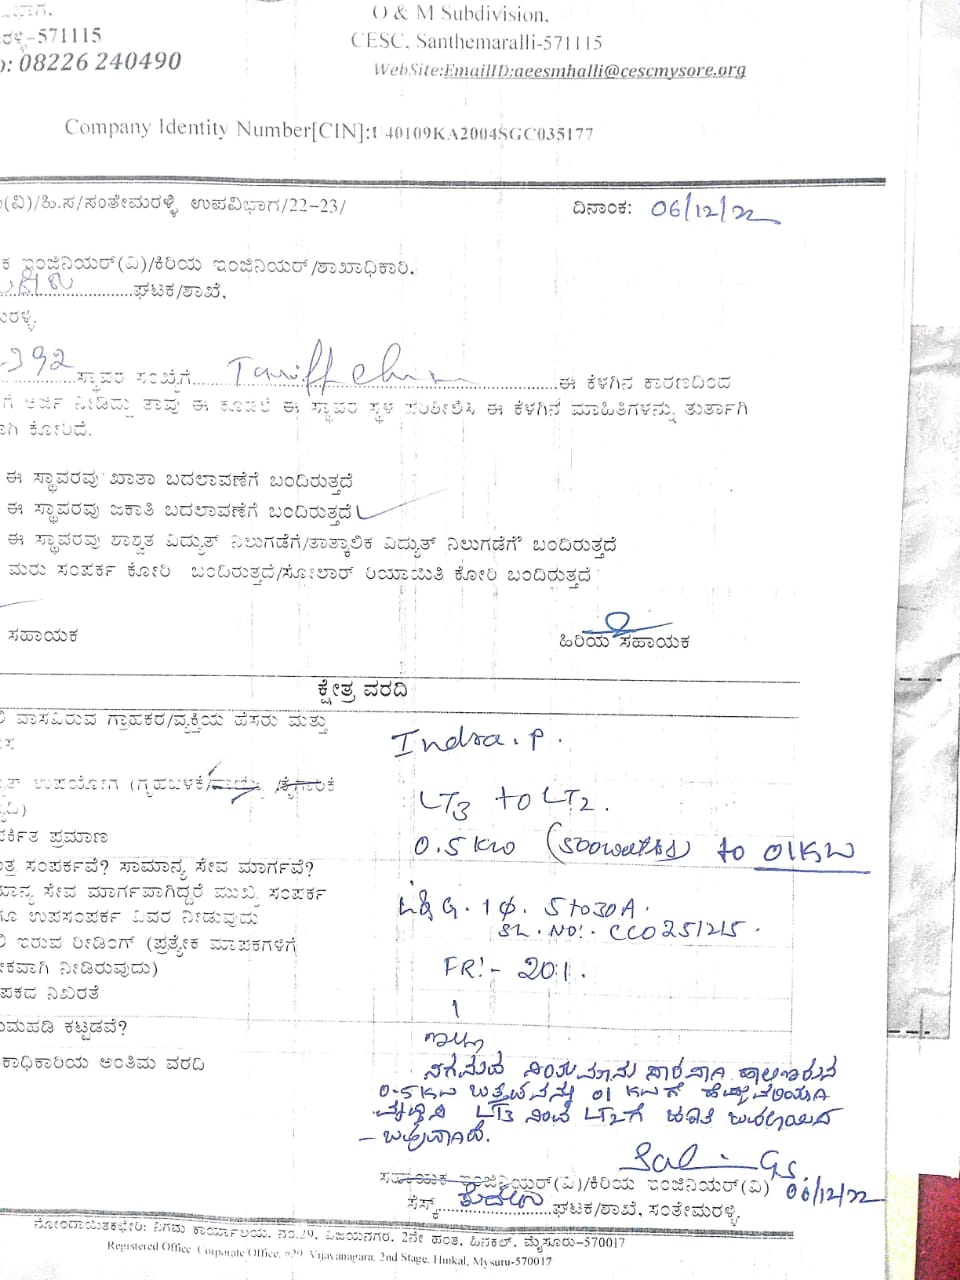 O & M Subdivision,
ರಳ್ಳಿ-571115
CESC, Santhemaralli-571115
: 08226 240490
WebSite:EmailID:aeesmhalli@cescmysore.org
Company Identity Number[CIN]:U40109KA2004SGC035177
(ವಿ)/ಹಿ.ಸ/ಸಂತೇಮರಳ್ಳಿ ಉಪವಿಭಾಗ/22-23/
ದಿನಾಂಕ: 06/12/22
ಕ ಇಂಜಿನಿಯರ್(ವಿ)/ಕಿರಿಯ ಇಂಜಿನಿಯರ್/ಶಾಖಾಧಿಕಾರಿ,
ಘಟಕ/ಶಾಖೆ,
ಮರಳ್ಳಿ.
392 ಸ್ಥಾವರ ಸಂಖ್ಯೆಗೆ Tariff ಈ ಕೆಳಗಿನ ಕಾರಣದಿಂದ
ಗೆ ಅರ್ಜಿ ನೀಡಿದ್ದು ತಾವು ಈ ಕೂಡಲೆ ಈ ಸ್ಥಾವರ ಸ್ಥಳ ಪರಿಶೀಲಿಸಿ ಈ ಕೆಳಗಿನ ಮಾಹಿತಿಗಳನ್ನು ತುರ್ತಾಗಿ
ಾಗಿ ಕೋರಿದೆ.
ಈ ಸ್ಥಾವರವು ಖಾತಾ ಬದಲಾವಣೆಗೆ ಬಂದಿರುತ್ತದೆ
ಈ ಸ್ಥಾವರವು ಜಕಾತಿ ಬದಲಾವಣೆಗೆ ಬಂದಿರುತ್ತದೆ
ಈ ಸ್ಥಾವರವು ಶಾಶ್ವತ ವಿದ್ಯುತ್ ನಿಲುಗಡೆಗೆ/ತಾತ್ಕಾಲಿಕ ವಿದ್ಯುತ್ ನಿಲುಗಡೆಗೆ ಬಂದಿರುತ್ತದೆ
ಮರು ಸಂಪರ್ಕ ಕೋರಿ ಬಂದಿರುತ್ತದೆ/ಸೋಲಾರ್ ರಿಯಾಯಿತಿ ಕೋರಿ ಬಂದಿರುತ್ತದೆ
ಸಹಾಯಕ
ಹಿರಿಯ ಸಹಾಯಕ
ಕ್ಷೇತ್ರ ವರದಿ
ಲಿ ವಾಸವಿರುವ ಗ್ರಾಹಕರ/ವ್ಯಕ್ತಿಯ ಹೆಸರು ಮತ್ತು
Indra. P.
ಉಪಯೋಗ (ಗೃಹಬಳಕೆ/ /ಕೈಗಾರಿಕೆ
LT3 to LT2.
ಪರ್ಕಿತ ಪ್ರಮಾಣ
0.5 KW (500watts) to 01KW
ತ್ರ ಸಂಪರ್ಕವೆ? ಸಾಮಾನ್ಯ ಸೇವ ಮಾರ್ಗವೆ?
ಮಾನ್ಯ ಸೇವ ಮಾರ್ಗವಾಗಿದ್ದರೆ ಮುಖ್ಯ ಸಂಪರ್ಕ
ಗೂ ಉಪಸಂಪರ್ಕ ವಿವರ ನೀಡುವುದು
L&G. 1Φ. 5to30A.
SL. NO:. CC0251215.
ಲಿ ಇರುವ ರೀಡಿಂಗ್ (ಪ್ರತ್ಯೇಕ ಮಾಪಕಗಳಿಗೆ
ೇಕವಾಗಿ ನೀಡಿರುವುದು)
FR:- 201.
ಪಕದ ನಿಖರತೆ
1
ುಮಹಡಿ ಕಟ್ಟಡವೆ?
ಇಲ್ಲ
ಕಾಧಿಕಾರಿಯ ಅಂತಿಮ ವರದಿ
ನಿಗಮದ ನಿಯಮಾನುಸಾರವಾಗಿ
0.5KW 01 KWಗೆ
LT3 ನಿಂದ LT2ಗೆ
ಬಹುದಾಗಿದೆ.
ಸಹಾಯಕ ಇಂಜಿನಿಯರ್(ವಿ)/ಕಿರಿಯ ಇಂಜಿನಿಯರ್(ವಿ) 06/12/22
ಸೆಸ್ಕ್ ಘಟಕ/ಶಾಖೆ, ಸಂತೇಮರಳ್ಳಿ.
ನೋಂದಾಯಿತಕಛೇರಿ: ನಿಗಮ ಕಾರ್ಯಾಲಯ, ನಂ.29, ವಿಜಯನಗರ, 2ನೇ ಹಂತ, ಹಿನಕಲ್, ಮೈಸೂರು-570017
Registered Office Corporate Office, n29, Vijayanagara, 2nd Stage, Hinkal, Mysuru-570017